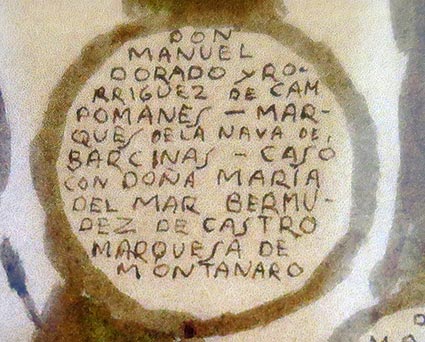 DON
MANUEL
DORADO Y RO-
RRIGUEZ DE CAM
POMANES - MAR-
QUES DE LA NAVA DE,
BARCINAS - CASÓ
CON DOÑA MARÍA
DEL MAR BERMU-
DEZ DE CASTRO
MARQUESA DE
MONTANARO